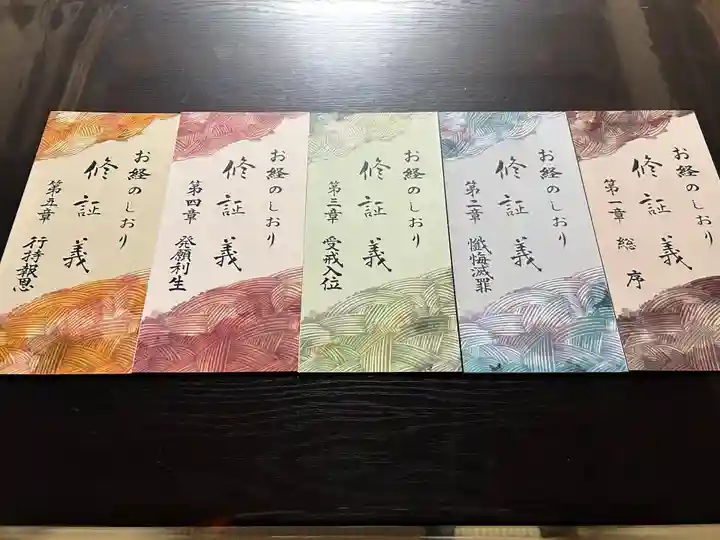 お経のしおり
修証義
第一章 総序
お経のしおり
修証義
第二章 懺悔滅罪
お経のしおり
修証義
第三章 受戒入位
お経のしおり
修証義
第四章 発願利生
お経のしおり
修証義
第五章 行持報恩